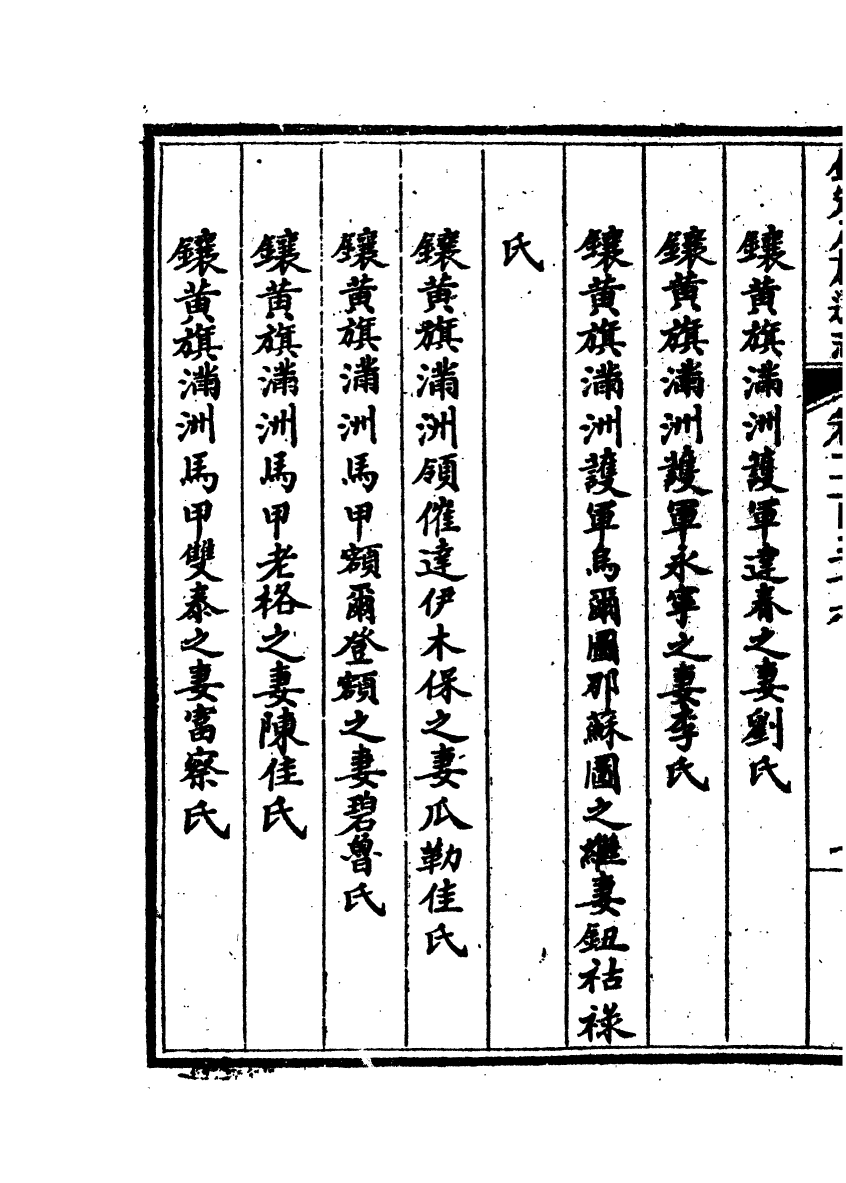 鑲黃旗滿洲護軍達春之妻劉氏
鑲黃旗滿洲護軍永寧之妻李氏
鑲黃旗滿洲護軍烏爾圖那蘇圖之繼妻鈕祜祿
氏
鑲黃旗滿洲領催達伊木保之妻瓜勒佳氏
鑲黃旗滿洲馬甲額爾登額之妻碧魯氏
鑲黃旗滿洲馬甲老格之妻陳佳氏
鑲黃旗滿洲馬甲雙泰之妻富察氏